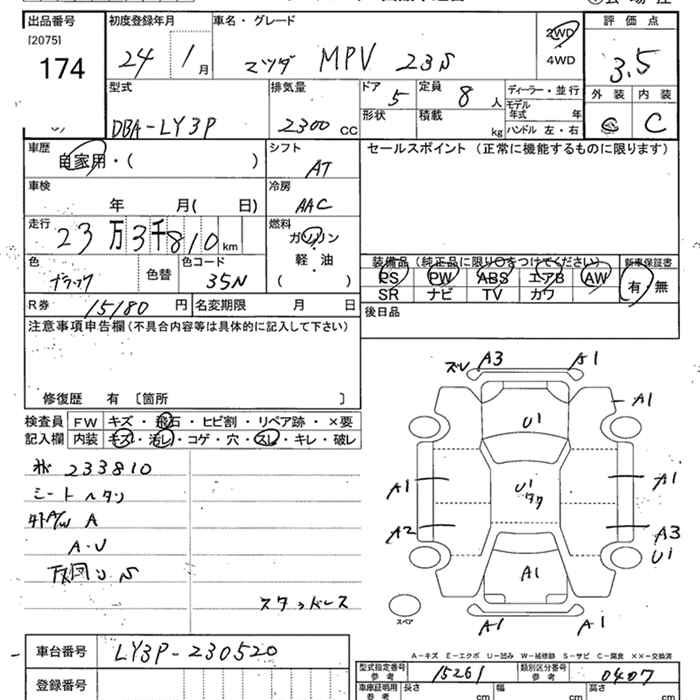 出品番号 初度登録年月 車名・グレード 評価点
[2075] 24 1月 マツダ MPV 23S 2WD 3.5
174 4WD 外装 内装
型式 排気量 ドア 5 定員 8人 ディーラー・並行 C
DBA-LY3P 2300cc 形状 積載 kg モデル年式 年
ハンドル 左・右
車歴 シフト セールスポイント (正常に機能するものに限ります)
自家用・( ) AT
車検 冷房
年 月( 日) AAC
走行 燃料
23万3千810km ガソリン
軽・油
( )
色 色替 色コード 装備品 (純正品に限り○をつけてください) 新車保証書
ブラック 35N PS PW ABS エアB AW 有・無
SR ナビ TV カワ
R券 15180円 名変期限 月 日 後日品
注意事項申告欄(不具合内容等は具体的に記入して下さい)
修復歴 有 〔箇所 〕
検査員 FW キズ・飛石・ヒビ割・リペア跡・×要
記入欄 内装 キズ・汚レ・コゲ・穴・スレ・キレ・破レ
233810
シート ヘタリ
A/W A
A・U
スタッドレス
A3 A1
A1
U1
A1 U1 A1
A2 A3
U1
A1
A1 A1
スペア
A-キズ E-エクボ U-凹み W-補修跡 S-サビ C-腐食 XX-交換済
車台番号 LY3P-230520
登録番号
型式指定番号 参考 15261 類別区分番号 参考 0407
車庫証明用 参考 長さ cm 幅 cm 高さ cm